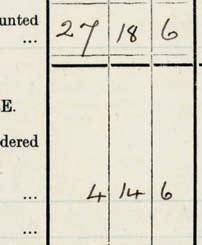 unted
... 27 18 6
E.
dered
... 4 14 6
...